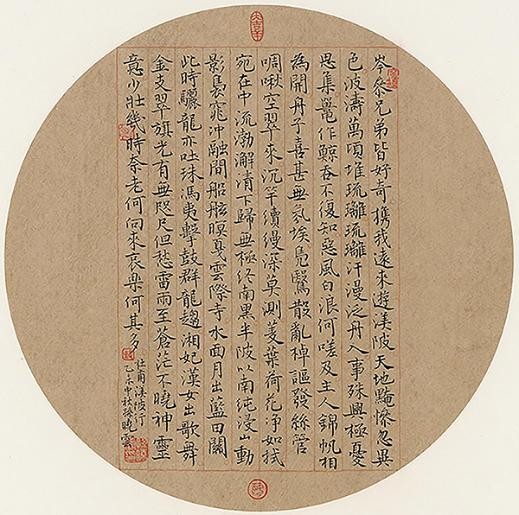 大吉羊
岑參兄弟皆好奇攜我遠來遊渼陂天地黤慘忽異
色波濤萬頃堆琉璃琉璃汗漫泛舟入事殊興極憂
思集鼉作鯨吞不復知惡風白浪何嗟及主人錦帆相
為開舟子喜甚無氛埃鳧鷖散亂棹謳發絲管
啁啾空翠來沉竿續縵深莫測菱葉荷花淨如拭
宛在中流渤澥清下歸無極終南黑半陂以南純浸山動
影裊窕沖融間船舷暝戛雲際寺水面月出藍田關
此時驪龍亦吐珠馮夷擊鼓群龍趨湘妃漢女出歌舞
金支翠旗光有無咫尺但愁雷雨至蒼茫不曉神靈
意少壯幾時奈老何向來哀樂何其多
杜甫渼陂行
乙未中秋孫曉雲